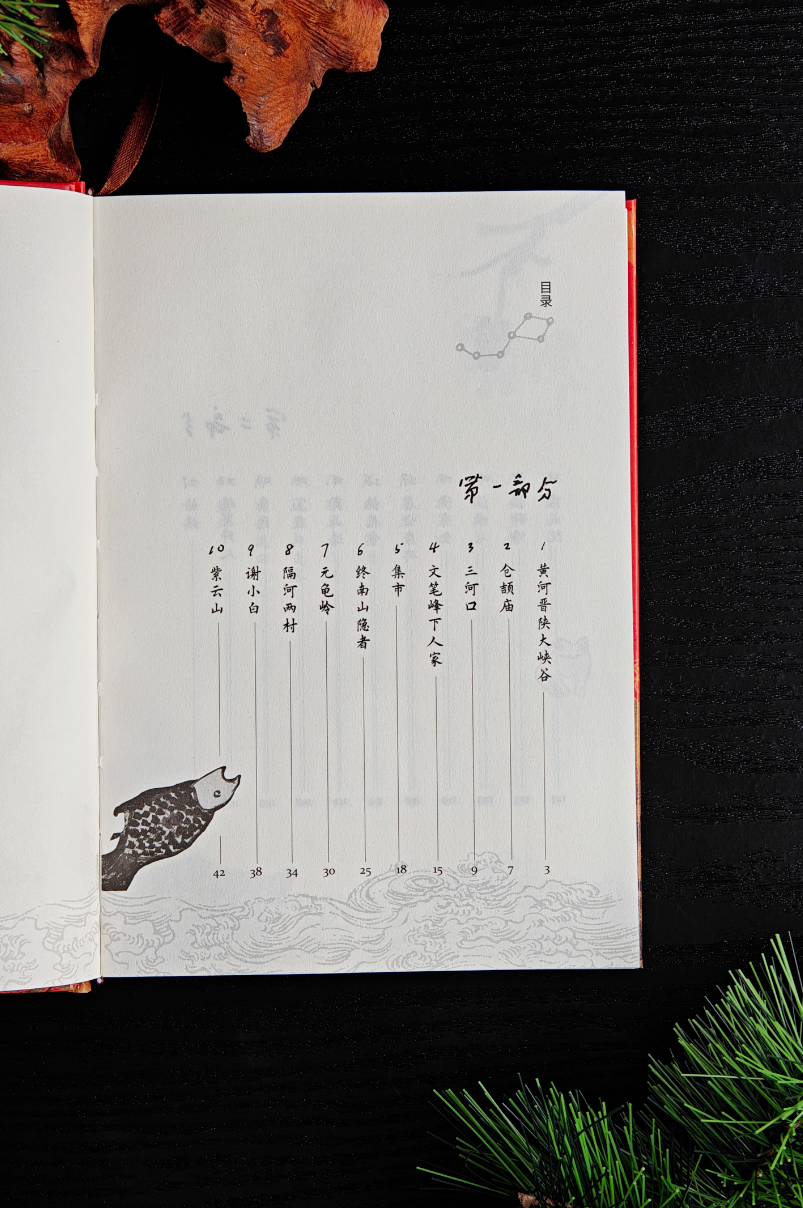 目录
第一部分
1 黄河晋陕大峡谷 3
2 仓颉庙 7
3 三河口 9
4 文笔峰下人家 15
5 集市 18
6 终南山隐者 25
7 元龟岭 30
8 隔河两村 34
9 谢小白 38
10 紫云山 42